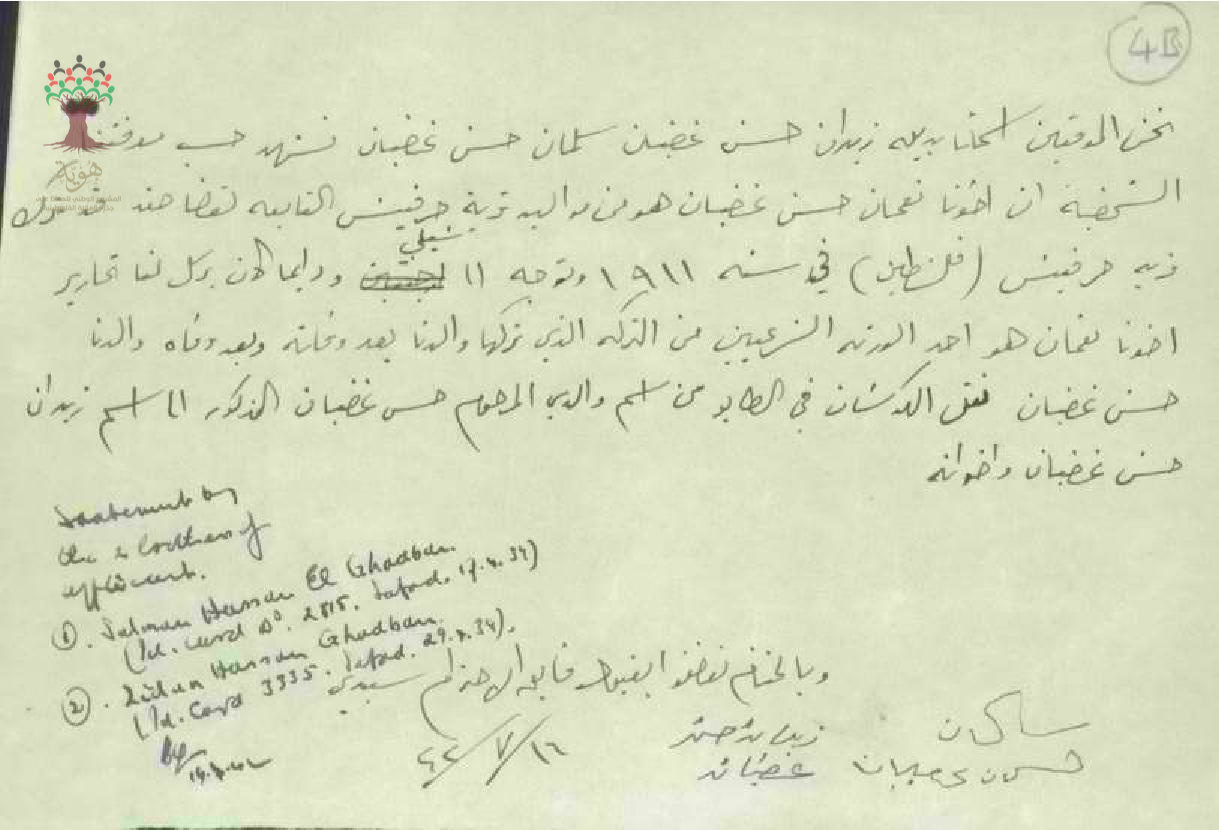 4B
هوية
نحن الموقعين اسمائنا بذيله زيدان حسن غضبان سلمان حسن غضبان نشهد حسب معرفتنا
الشخصية ان اخونا نعمان حسن غضبان هو من مواليد قرية حرفيش التابعه لقضا صفد
قريه حرفيش (فلسطين) في سنه ١٩١١ وتوجه الا تشيلي ودايما كان يرسل لنا تحارير
اخونا نعمان هو احد الورثه الشرعيين من التركه الذي تركها والدنا بعد وفاته وبعد وفاه والدنا
حسن غضبان نقل الكوشان في الطابو من اسم والدي المرحوم حسن غضبان المذكور الا اسم زيدان
حسن غضبان واخوانه
Statement by
the 2 brothers of
applicant.
(1). Salman Hassan El Ghadban
(Id. Card No. 2815. Safad. 17.4.34)
(2). Zidan Hassan Ghadban.
(Id. Card 3335. Safad. 29.4.34).
وبالختام تفضلوا بقبول فايق الاحترام سيدي
سلمان
حسن غضبان
زيدان حسن
غضبان
١٦/٧/٤٢